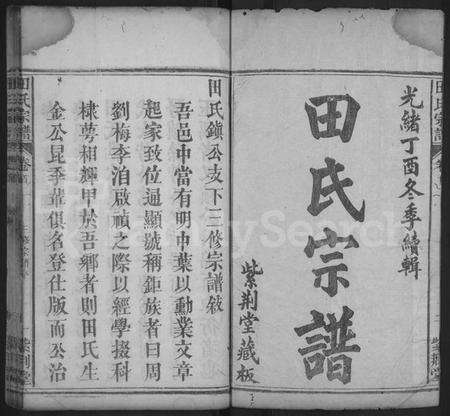 光緒丁酉冬季續輯
田氏宗譜
紫荆堂藏板
田氏鎭公支下三修宗譜敘
吾邑中當有明中葉以勳業文章
起家致位通顯號稱鉅族者曰周
劉梅李洎啟禎之際以經學掇科
棣萼相輝甲於吾鄉者則田氏生
金公昆季輩俱名登仕版而公治
田氏宗譜
卷首